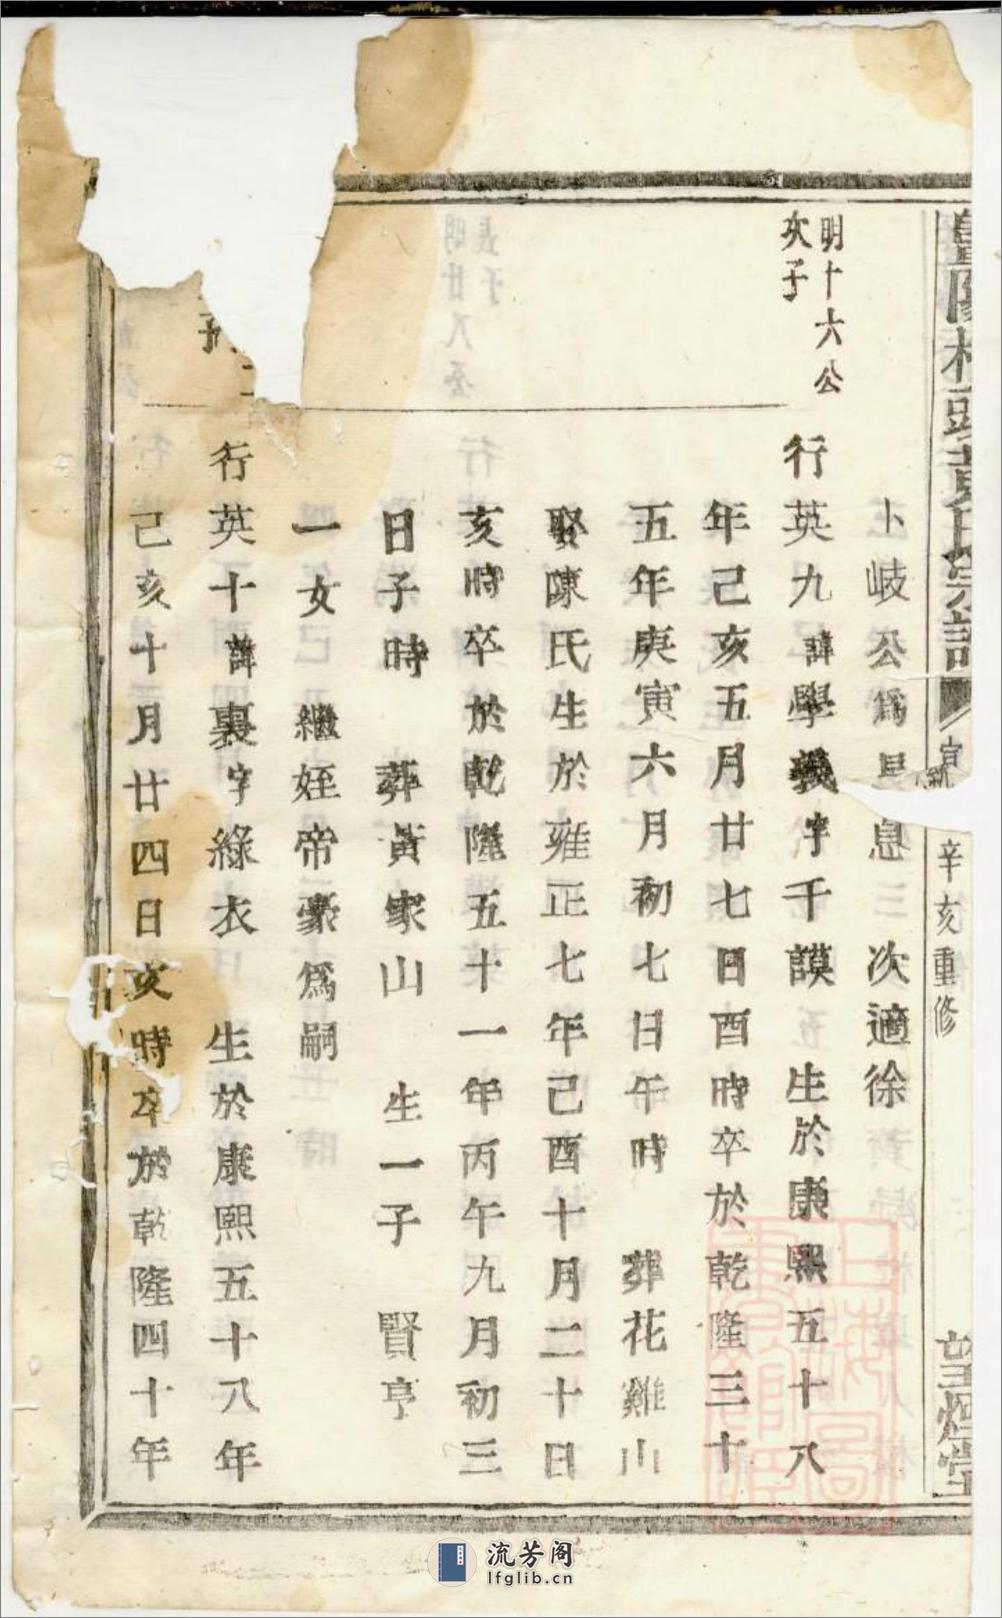 黃氏宗譜
辛亥重修
望煙堂
卜岐公爲 息三 次適徐
明十六公
次子
行英九諱學義字千謨 生於康熙五十八
年己亥五月廿七日酉時卒於乾隆三十
五年庚寅六月初七日午時 葬花雞山
娶陳氏生於雍正七年己酉十月二十日
亥時卒於乾隆五十一年丙午九月初三
日子時 葬黃家山 生一子 賢亨
一女 繼姪帝豪爲嗣
行英十諱裏字綠衣 生於康熙五十八年
己亥十月廿四日亥時卒於乾隆四十年
流芳阁
lfglib.cn